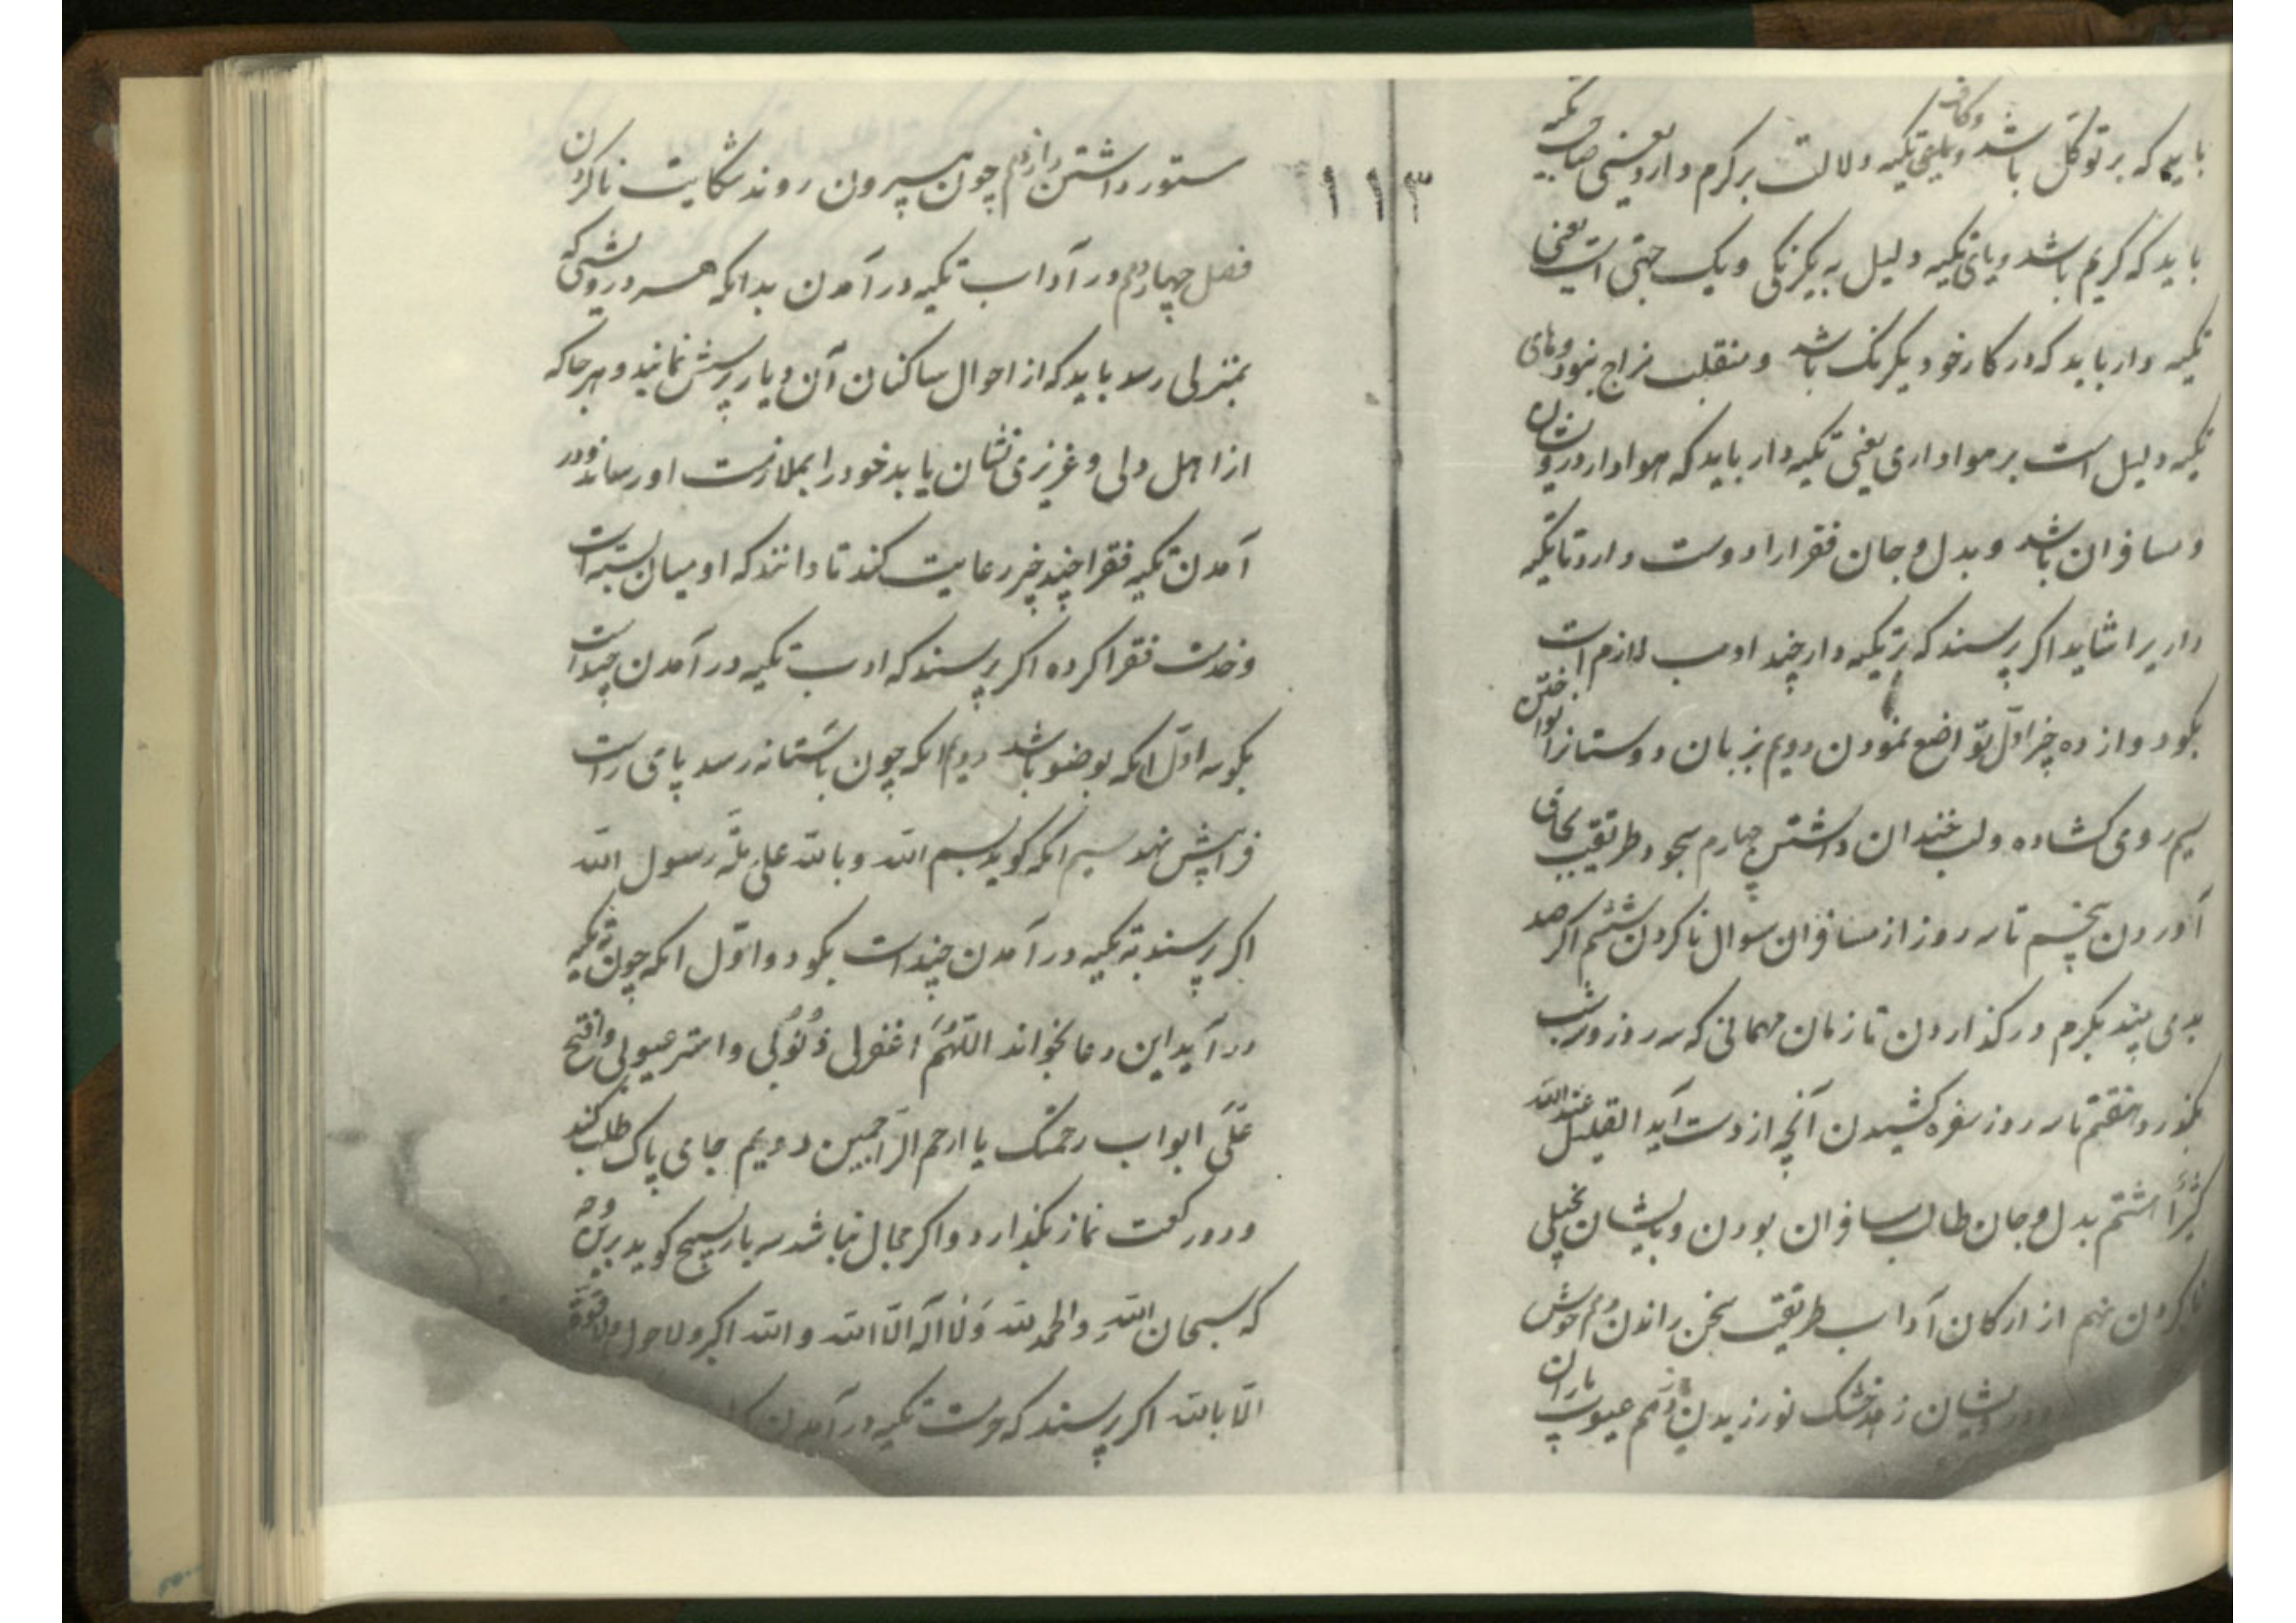 باید که بر توکل باشد و کاف تکیه دلالت بر کرم دارد یعنی صاحب تکیه
باید که کریم باشد و یای تکیه دلیل به یکرنگی و یک جهتی است یعنی
تکیه دار باید که در کار خود یکرنگ باشد و منقلب مزاج نبود و های
تکیه دلیل است بر هواداری یعنی تکیه دار باید که هوادار درویشان
و مسافران باشد و بدل و جان فقرا را دوست دارد تا تکیه
داریرا شاید اگر پرسند که بر تکیه دار چند ادب لازم است
بگو دوازده چیز اول تواضع نمودن دویم بزبان دوستانرا نواختن
سیم روی کشاده و لب خندان داشتن چهارم سجود طریقت بجای
آوردن پنجم تا سه روز از مسافران سوال ناکردن ششم اگر صد
بدی بیند بکرم در گذاردن تا زمان مهمانی که سه روز و سه شب
بگذرد هفتم تا سه روز سفره کشیدن آنچه از دست آید القلیل عند الله
کثیرًا هشتم بدل و جان طالب مسافران بودن و بایشان بخیلی
ناکردن نهم از ارکان آداب طریقت سخن راندن دهم خوش
درویشان زهد خشک نورزیدن یازدهم عیوب یاران
۱۱۳
مستور داشتن دوازدهم چون بیرون روند شکایت ناکردن
فصل چهاردهم در آداب تکیه در آمدن بدانکه هر درویشی که
بمنزلی رسد باید که از احوال ساکنان آن دیار پرسش نماید و هر جا که
از اهل دلی و عزیزی نشان یابد خود را بملازمت او رساند و در
آمدن تکیه فقرا چند چیز رعایت کند تا دانند که او میان بسته است
و خدمت فقرا کرده اگر پرسند که ادب تکیه در آمدن چند است
بگو سه اول آنکه بوضو باشد دویم آنکه چون باستانه رسد پای راست
فرا پیش نهد سیم آنکه گوید بسم الله و بالله علی ملّة رسول الله
اگر پرسند به تکیه در آمدن چند است بگو دو اول آنکه چون به تکیه
در آید این دعا بخواند اللّهُمَّ اغفرلی ذُنُوبی و استر عیوبی وافتح
عَلَیَّ ابواب رحمتک یا ارحم الرّاحمین دویم جای پاک طلب کند
و دو رکعت نماز بگذارد و اگر مجال نباشد سه بار تسبیح گوید برین وجه
که سبحان الله والحمد لله وَلاٰ اله الّا الله والله اکبر ولا حول ولا قوّة
الّا بالله اگر پرسند که حرمت تکیه در آمدن